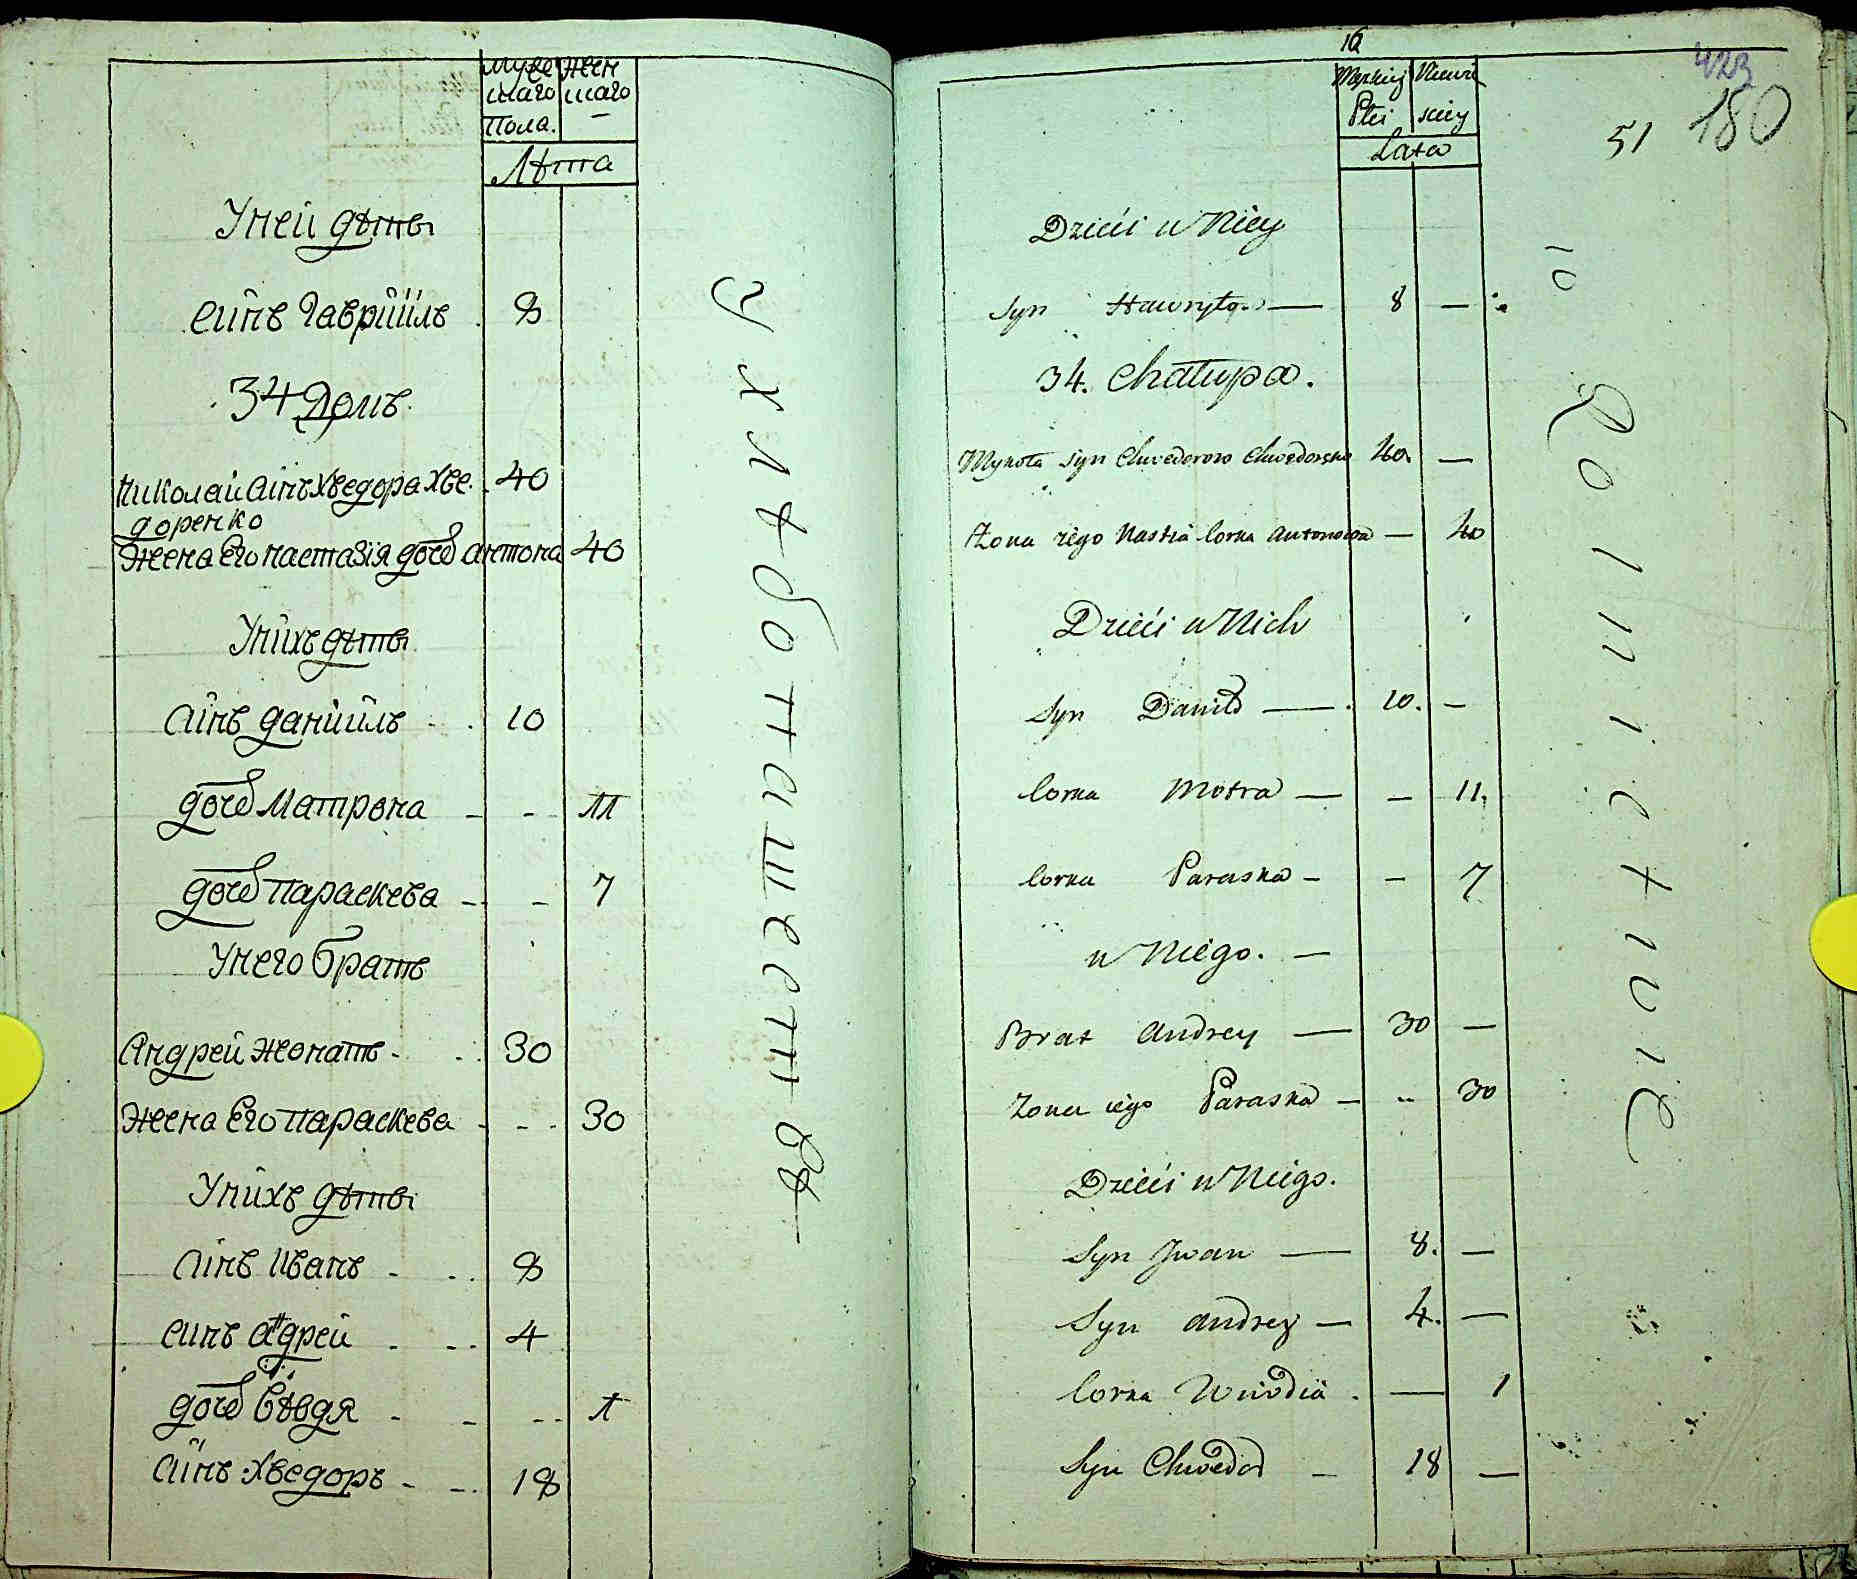 Муже Жен
скаго скаго
Пола. —
Лѣта
Унеи дѣти
Синъ Гавріилъ . 8
34 Домъ.
Николаи Синъ Хведора Хве. 40
доренко
Жена Его настазія дочь антона 40
Унихъ дѣти
Синъ даніилъ - . 10
дочь Матрона - - - 11
дочь параскева - - 7
Унего братъ
Андреи жонатъ - . 30
Жена Его параскева - - - 30
Унихъ дѣти
Синъ Иванъ - .. 8
Синъ андреи . - .. 4
дочь Евдя - - - .. 1
Синъ Хведоръ - - .. 18
у хлѣботашествѣ
16
423
180
51
Męzkiey Niewie
Płci sciey
Lata
Dzieci u Niey
Syn Hawryło — 8 —
34. Chałupa.
Mykoła syn Chwedorow Chwedorenko 40. —
Zona iego Nastia Corka Antonowa — 40
Dzieci u Nich
Syn Daniło — 10. —
Corka Motra — — 11.
Corka Paraska — — 7
u Niego. —
Brat Andrey — 30 —
Zona iego Paraska — .. 30
Dzieci u Niego.
Syn Jwan — 8. —
Syn Andrey — 4. —
Corka Wiwdia . — 1
Syn Chwedor — 18 —
Rolnictwie